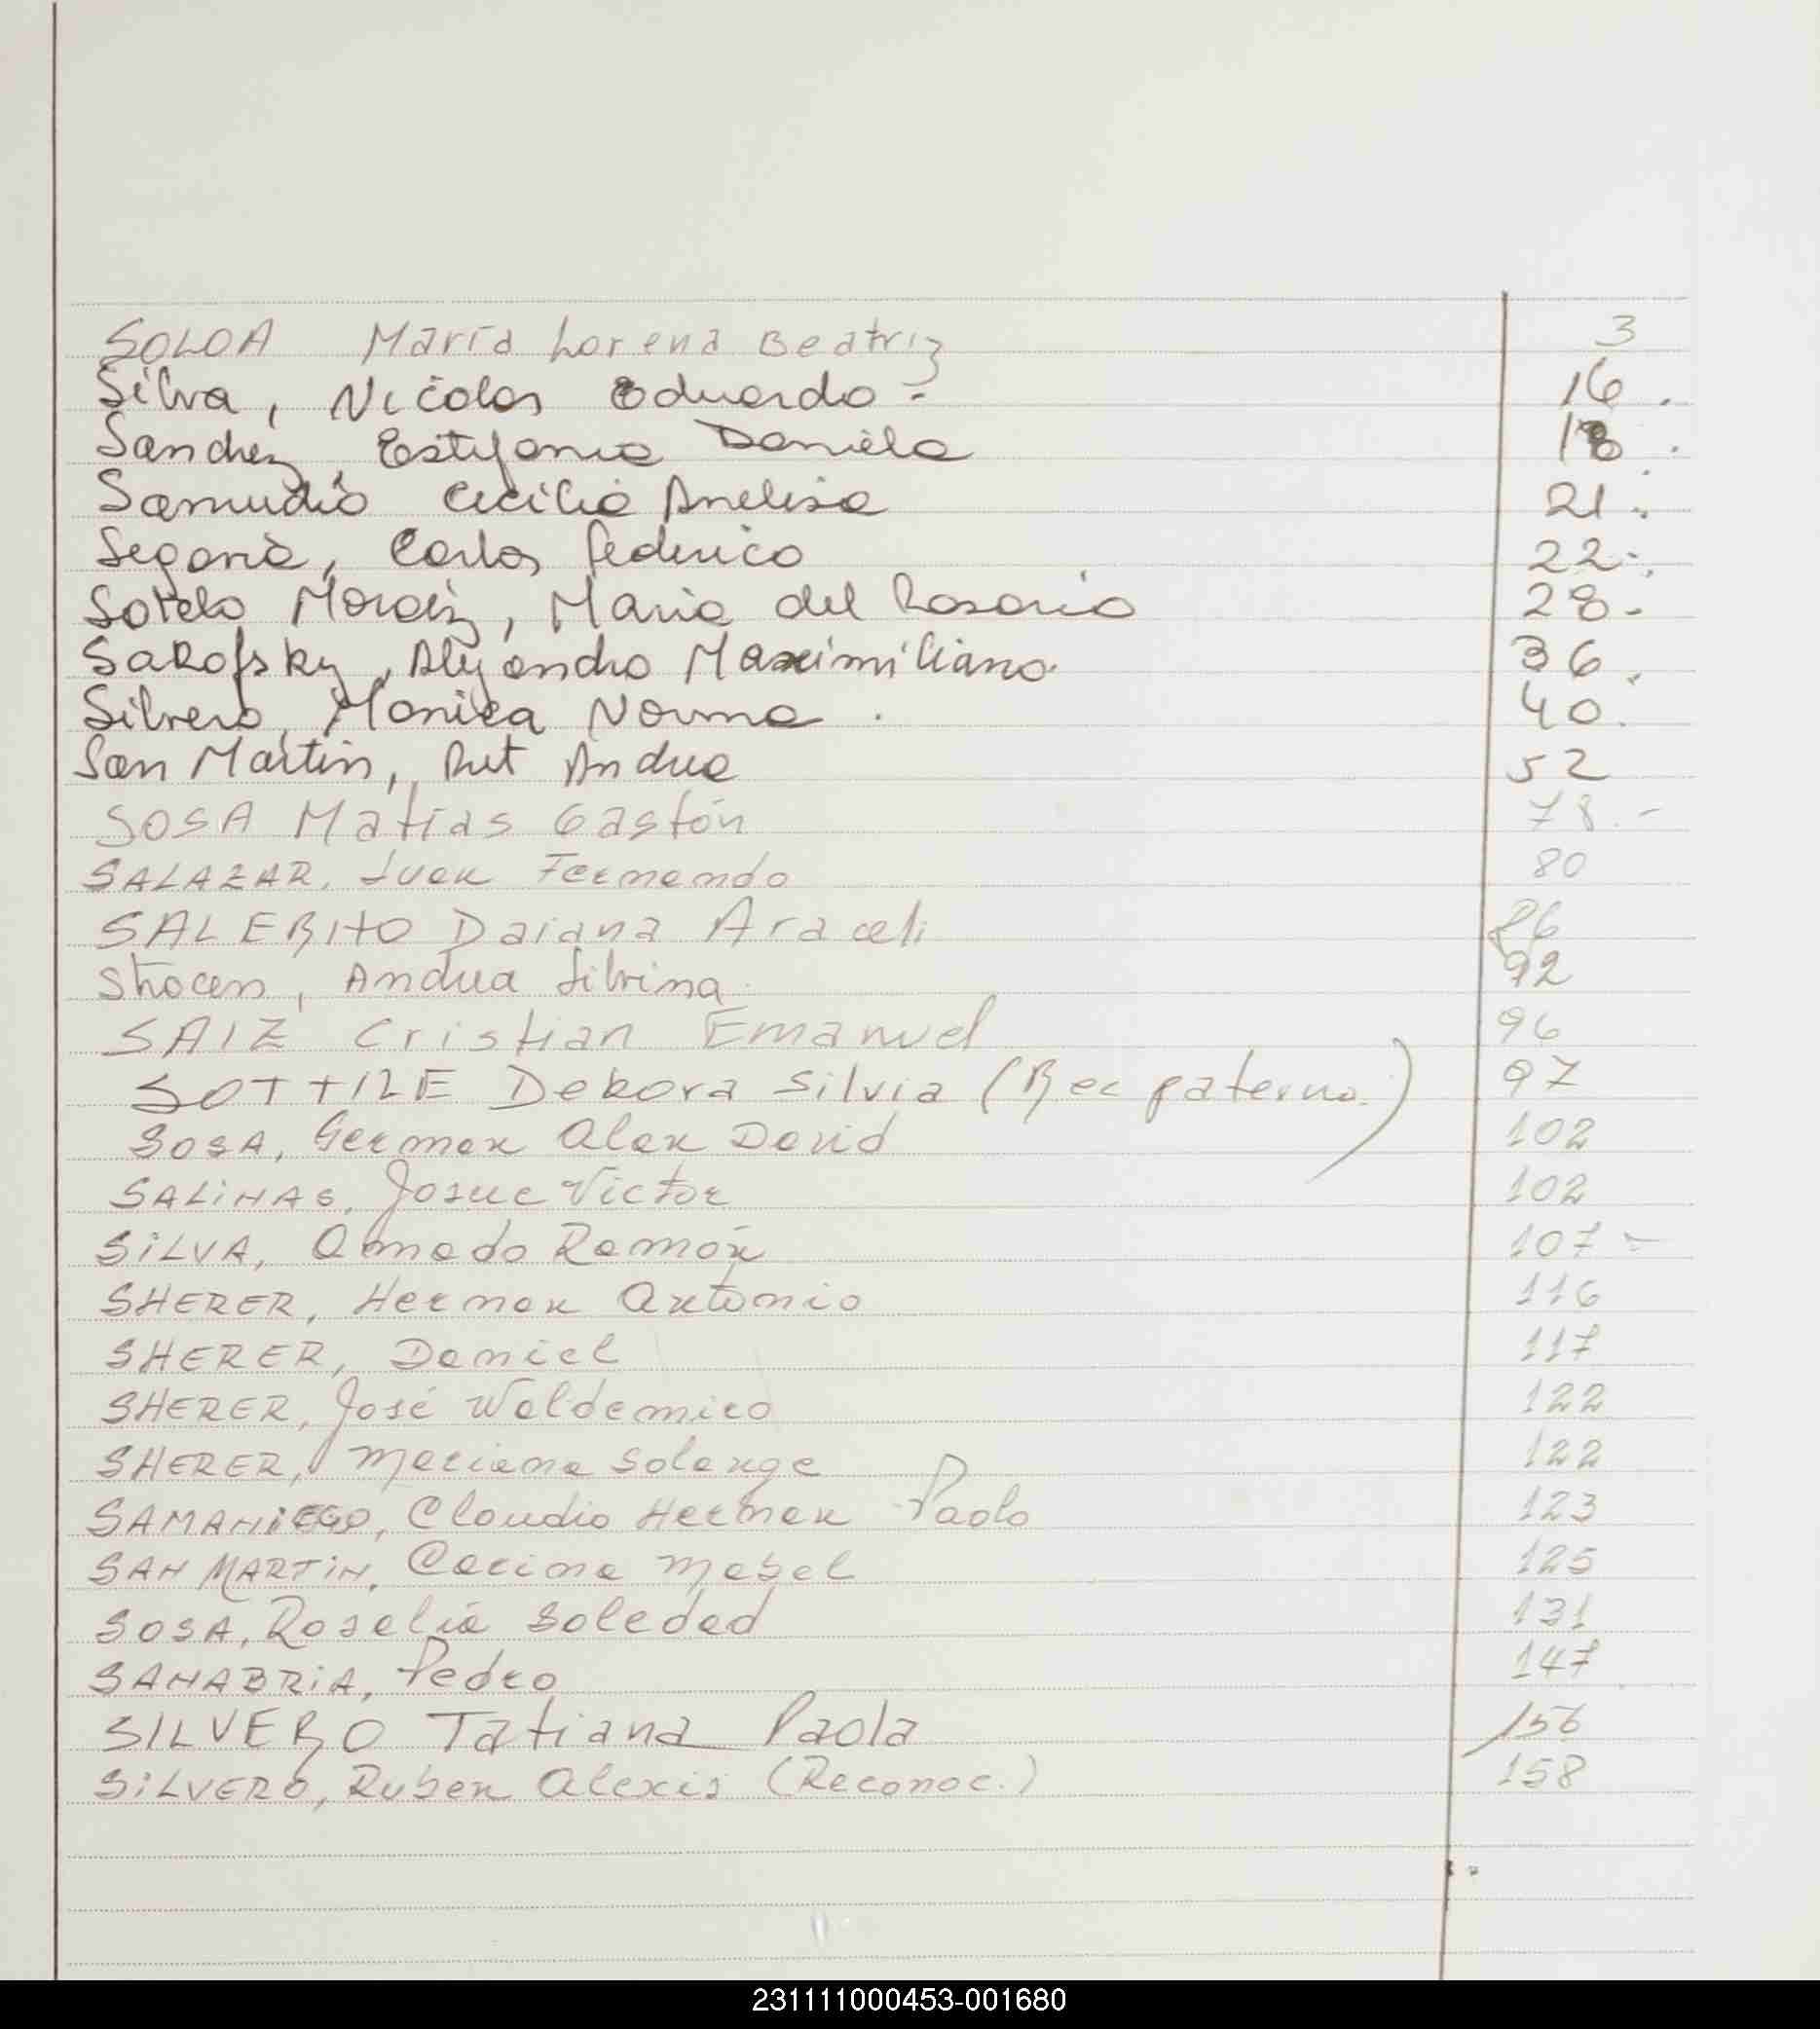 SOLOA María Lorena Beatriz 3
Silva, Nicolas Eduardo.- 16.
Sanchez, Estefania Daniela 18.
Samudio Cecilia Anelisa 21.
Segovia, Carlos Federico 22.
Sotelo Moraiz, Maria del Rosario 28.-
Sakofsky, Alejandro Maximiliano. 36.
Silvero, Monica Norma. 40.
San Martin, Rut Andrea 52
SOSA Matías Gastón 78.-
SALAZAR, Juan Fernando 80
SALERNO Daiana Araceli 86
Strocen, Andrea Silvina. 92
SAIZ Cristian Emanuel 96
SOTTILE Debora Silvia (Rec paterno.) 97
SOSA, German Alan David 102
SALINAS, Josue Victor 102
SILVA, Amado Ramón 107-
SHERER, Hernan Antonio 116
SHERER, Daniel 117
SHERER, José Waldemiro 122
SHERER, Mariana Solange 122
SAMANIEGO, Claudio Hernan Paolo 123
SAN MARTIN, Carina Mabel 125
SOSA, Rosalia Soledad 131
SANABRIA, Pedro 147
SILVERO Tatiana Paola 156
SILVERO, Ruben Alexis (Reconoc.) 158
231111000453-001680